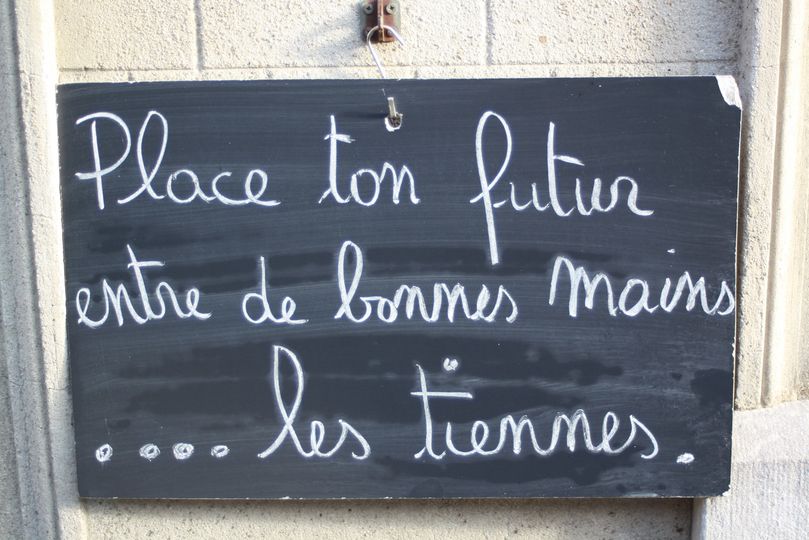 Place ton futur
entre de bonnes mains
.... les tiennes.